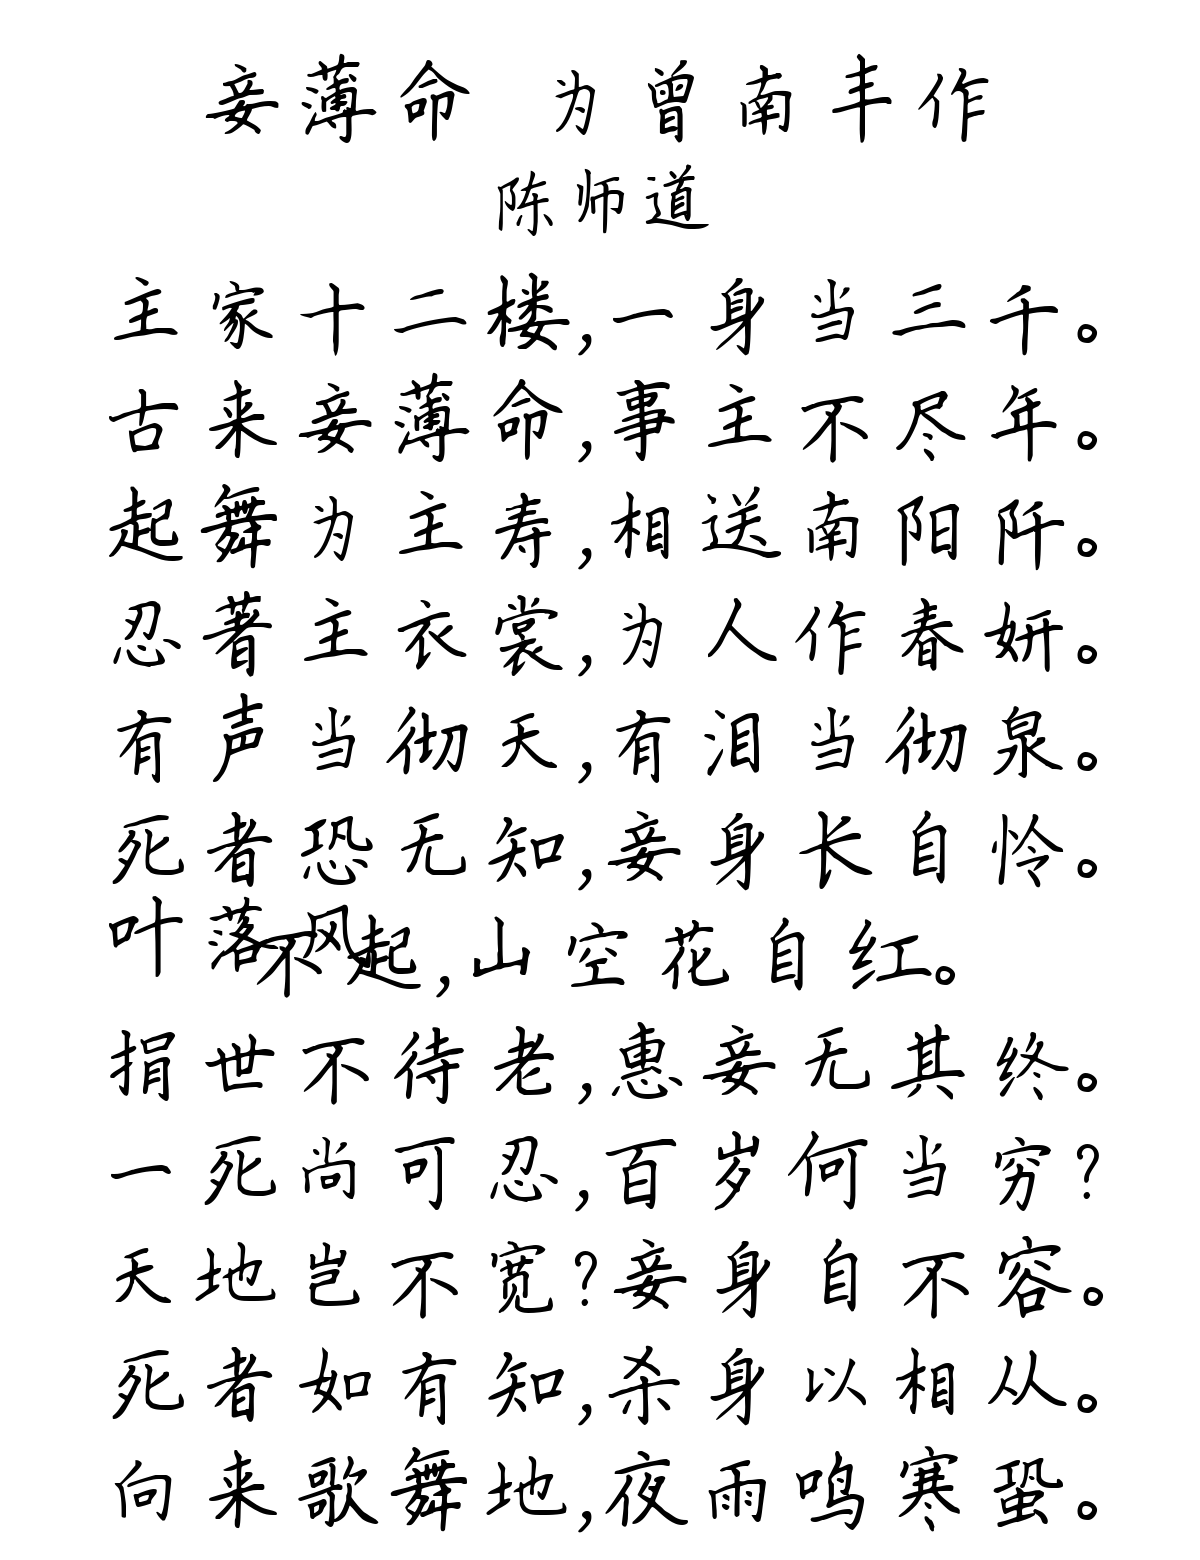 妾薄命 为曾南丰作
陈师道
主家十二楼,一身当三千。
古来妾薄命,事主不尽年。
起舞为主寿,相送南阳阡。
忍著主衣裳,为人作春妍。
有声当彻天,有泪当彻泉。
死者恐无知,妾身长自怜。
叶落风不起,山空花自红。
捐世不待老,惠妾无其终。
一死尚可忍,百岁何当穷?
天地岂不宽?妾身自不容。
死者如有知,杀身以相从。
向来歌舞地,夜雨鸣寒蛩。